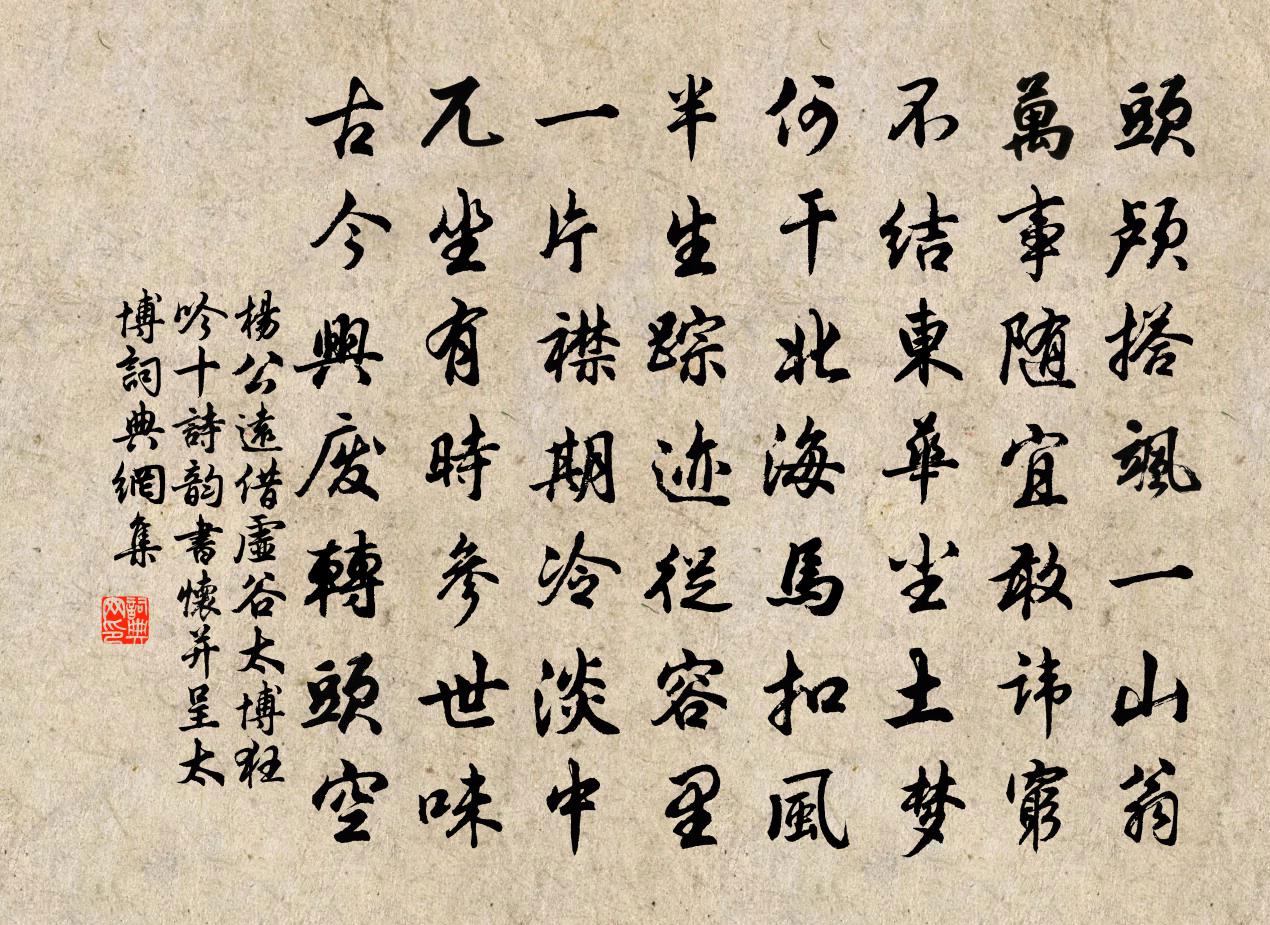 頭顱搭颯一山翁
萬事随宜敢諱窮
不结東華尘土梦
何干北海馬扣風
半生踪迹從容里
一片襟期冷淡中
兀坐有時參世味
古今興废轉頭空
楊公遠借虛谷太博狂
吟十詩韵書懷并呈太
博詞典網集
詞典
网印